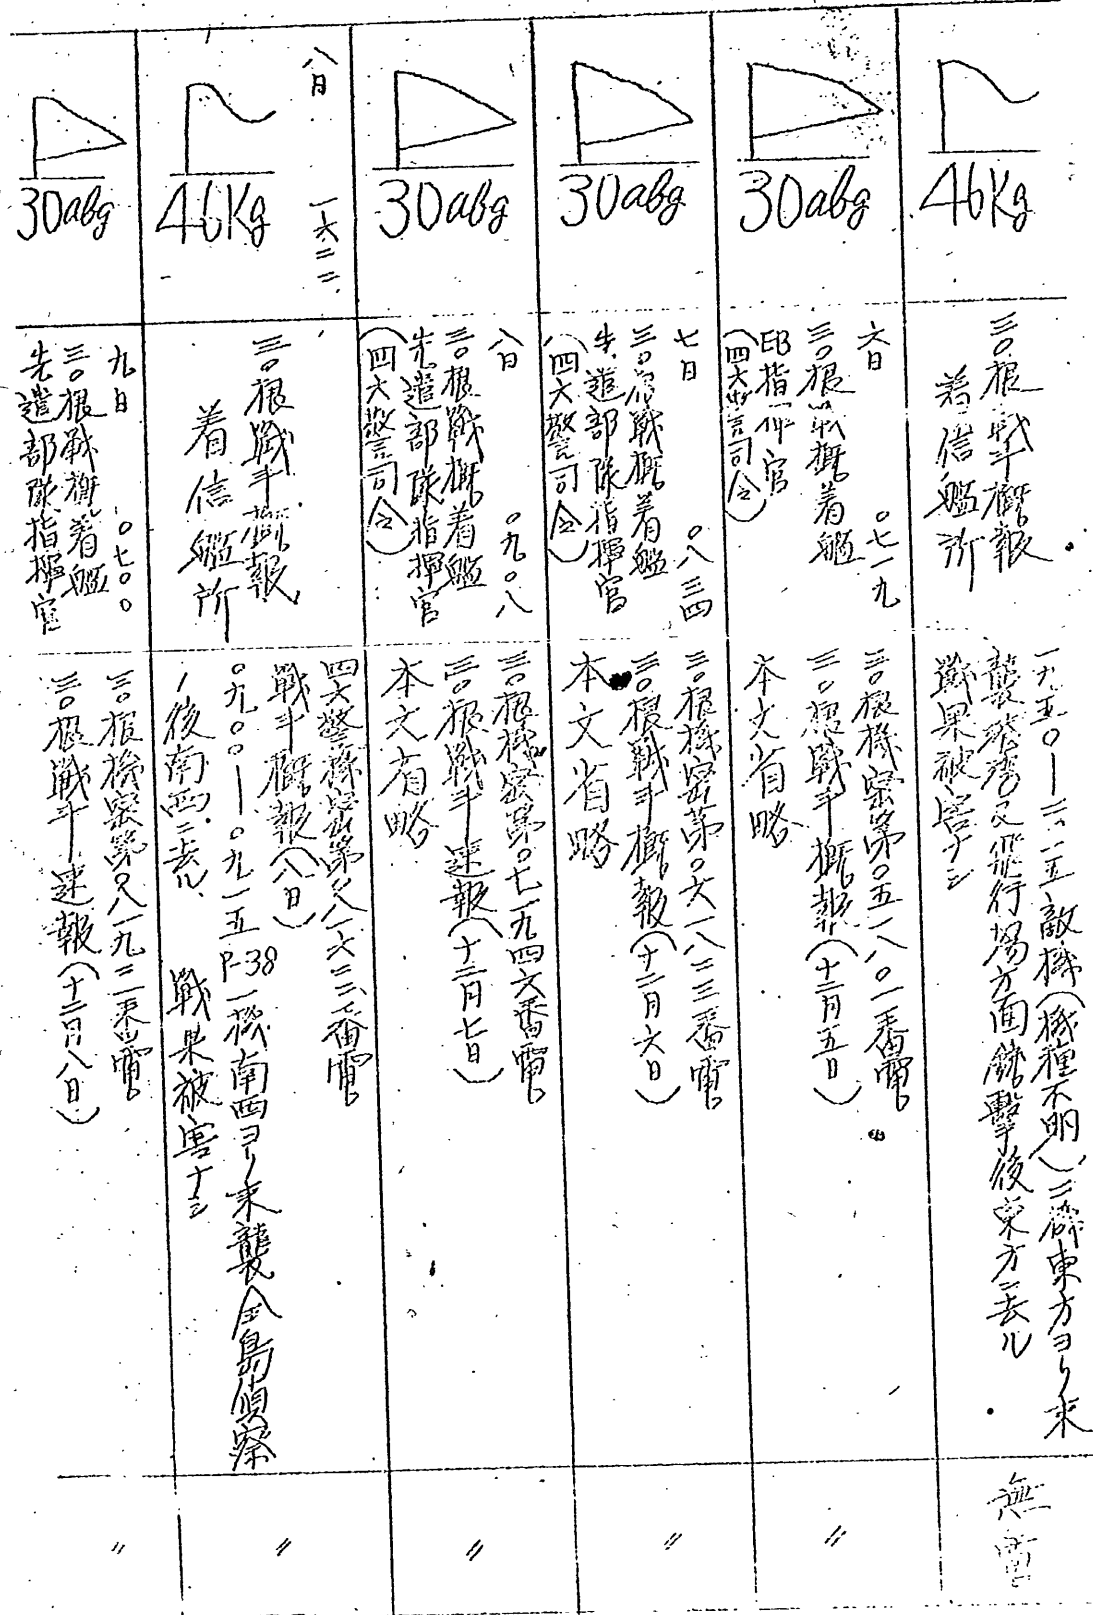 46Kg
三〇根戦斗概報
着信艦所
一九五〇—二〇一五敵機(機種不明)二機東方ヨリ来
襲 又飛行場方面銃撃後東方ニ去ル
戦果被害ナシ
無電
30abg
六日 〇七一九
三〇根戦概着艦
EB指揮官
(四六警司令)
三〇根機密第〇五一八〇一番電
三〇根戦斗概報(十二月五日)
本文省略
〃
30abg
七日 〇八三四
三〇根戦概着艦
先遣部隊指揮官
(四六警司令)
三〇根機密第〇六一八二三番電
三〇根戦斗概報(十二月六日)
本文省略
〃
30abg
八日 〇九〇八
三〇根戦概着艦
先遣部隊指揮官
(四六警司令)
三〇根機密第〇七一九四六番電
三〇根戦斗速報(十二月七日)
本文省略
〃
八日 一六二二
46Kg
三〇根戦斗概報
着信艦所
四六警機密第〇八一六二二番電
戦斗概報(八日)
〇九〇〇—〇九一五P-38一機南西ヨリ来襲全島偵察
ノ後南西ニ去ル 戦果被害ナシ
〃
30abg
九日 〇七〇〇
三〇根戦概着艦
先遣部隊指揮官
三〇根機密第〇八一九二一番電
三〇根戦斗速報(十二月八日)
〃